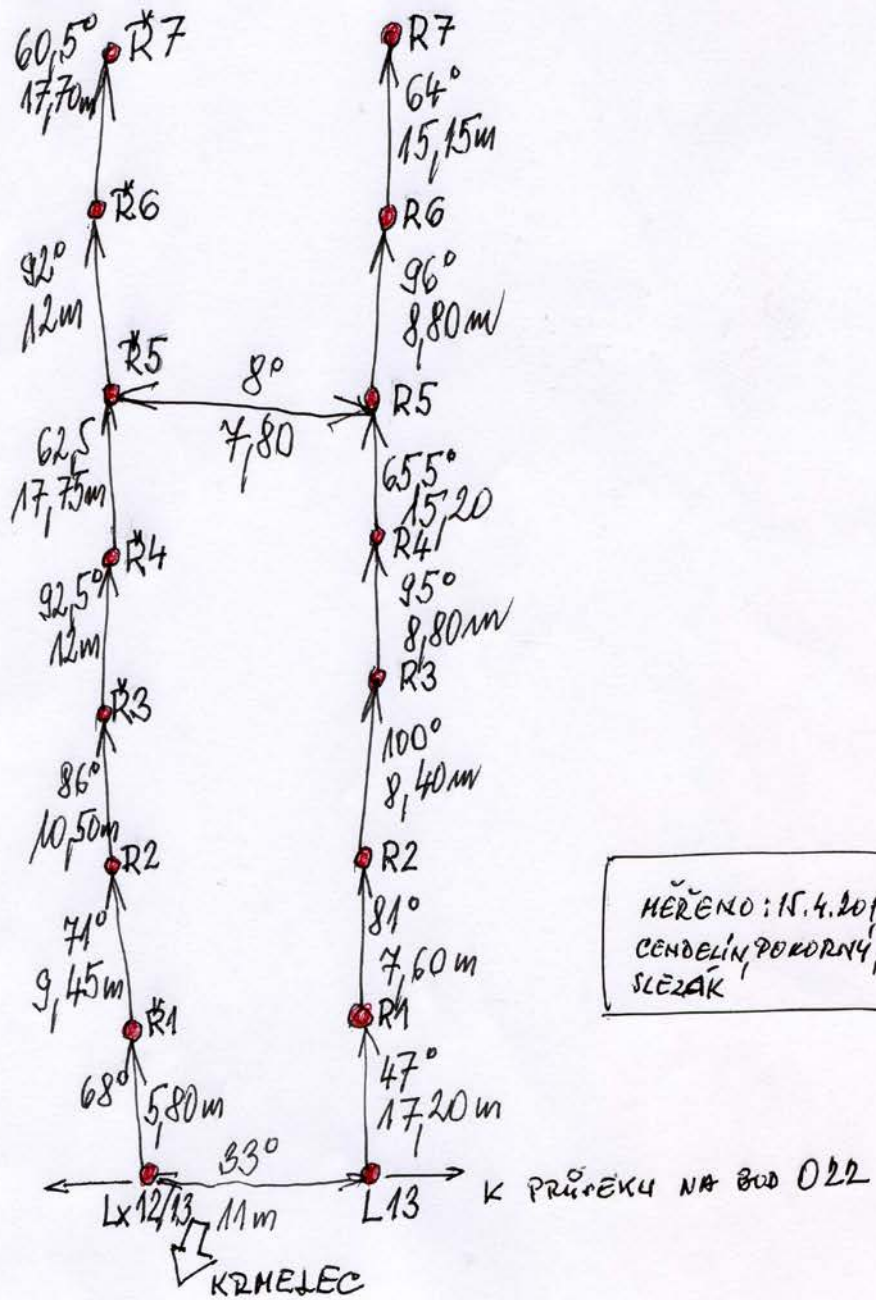 60,5° Ř7
17,70m
Ř6
92°
12m
Ř5
62,5
17,75m
Ř4
92,5°
12m
Ř3
86°
10,50m
R2
71°
9,45m
Ř1
68° 5,80m
Lx12/13
8°
7,80
33°
11m
KRMELEC
R7
64°
15,15m
R6
96°
8,80m
R5
65,5°
15,20
R4
95°
8,80m
R3
100°
8,40m
R2
81°
7,60m
R1
47°
17,20m
L13
K PRŮSEKU NA BOD 022
MĚŘENO: 15.4.201
CENDELÍN, POKORNÝ,
SLEZÁK